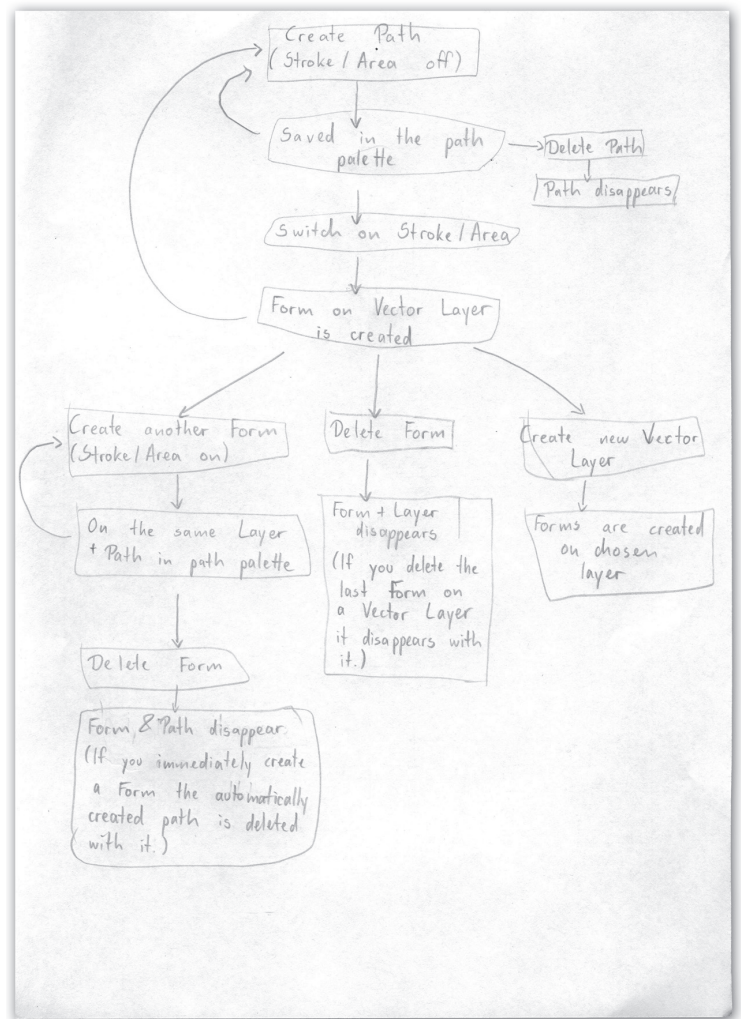 Create Path
(Stroke / Area off)
Saved in the path
palette
Delete Path
Path disappears
Switch on Stroke / Area
Form on Vector Layer
is created
Create another Form
(Stroke / Area on)
On the same Layer
+ Path in path palette
Delete Form
Form & Path disappear.
(If you immediately create
a Form the automatically
created path is deleted
with it.)
Delete Form
Form + Layer
disappears
(If you delete the
last Form on
a Vector Layer
it disappears with
it.)
Create new Vector
Layer
Forms are created
on chosen
layer